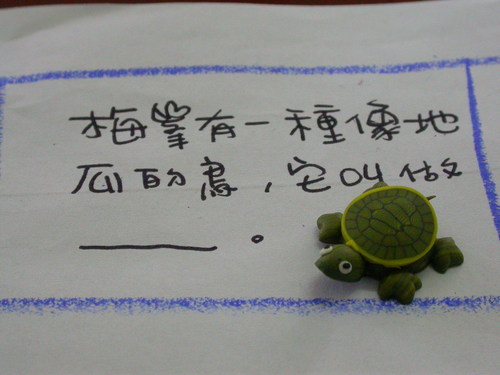 梅峯有一種像地
瓜的鳥，它叫做
______。